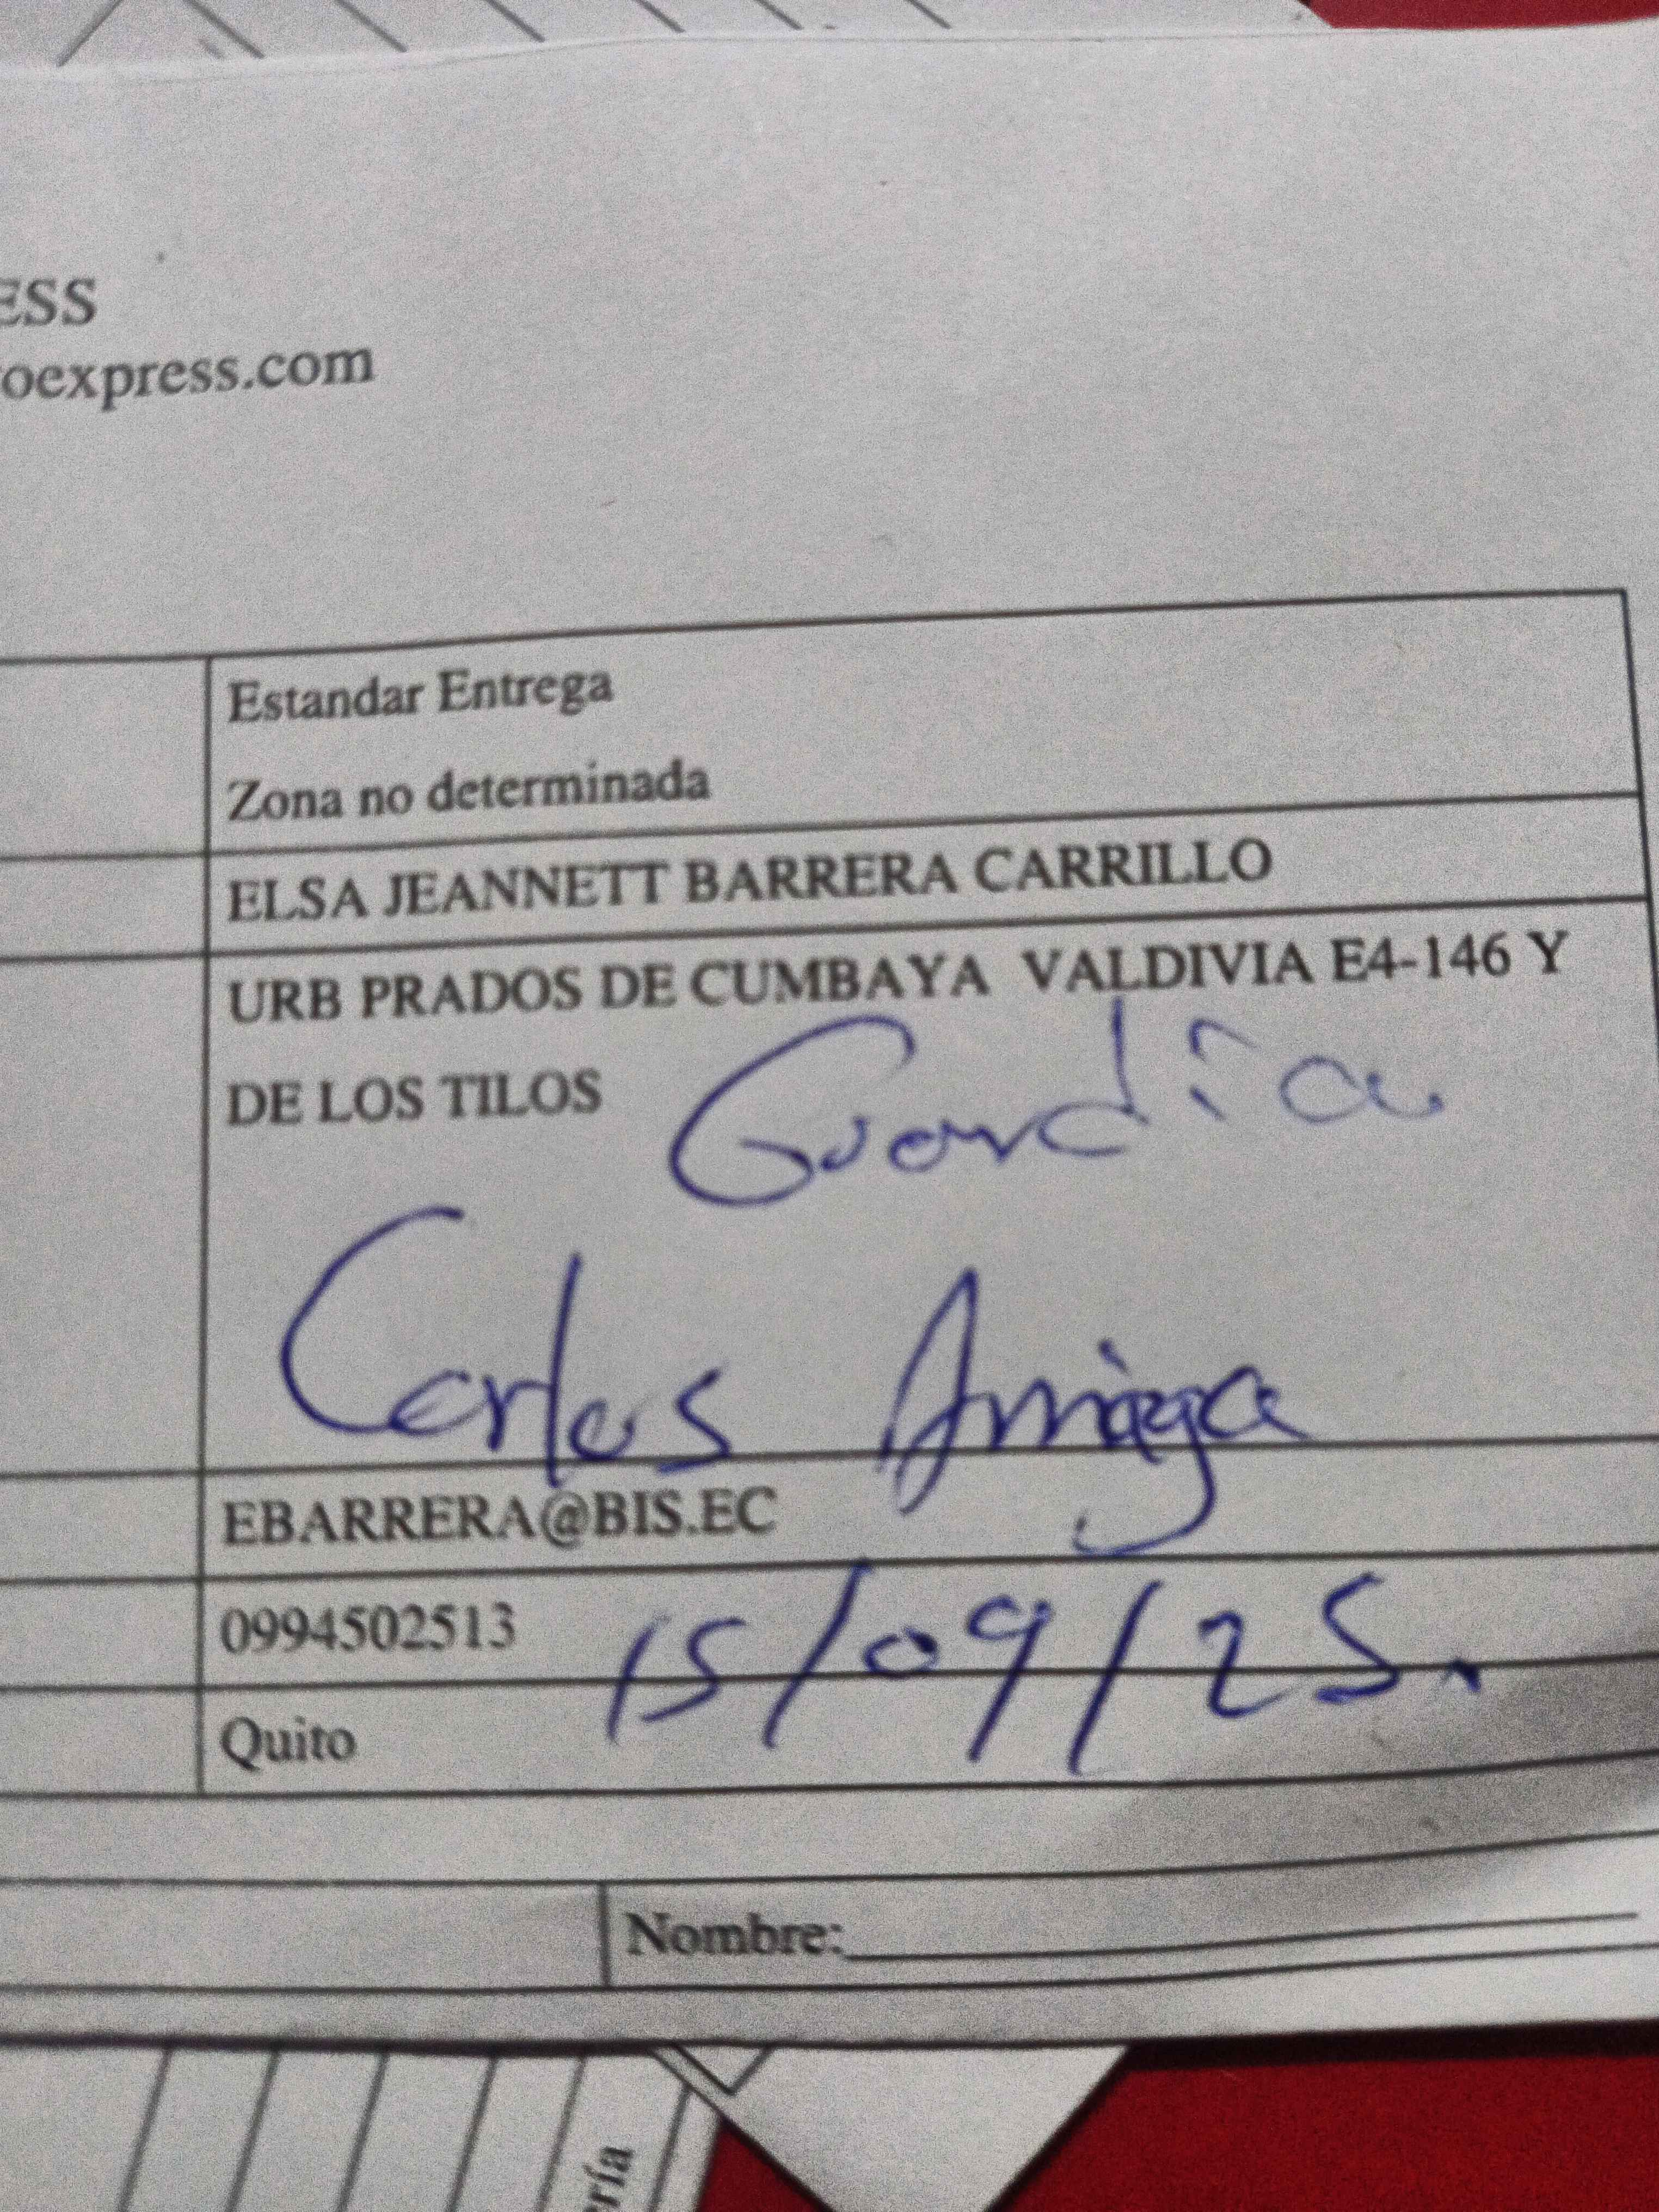 ESS
oexpress.com
Estandar Entrega
Zona no determinada
ELSA JEANNETT BARRERA CARRILLO
URB PRADOS DE CUMBAYA VALDIVIA E4-146 Y
DE LOS TILOS
Guardia
Carlos Arriaga
EBARRERA@BIS.EC
0994502513
15/09/25.
Quito
Nombre:
ría